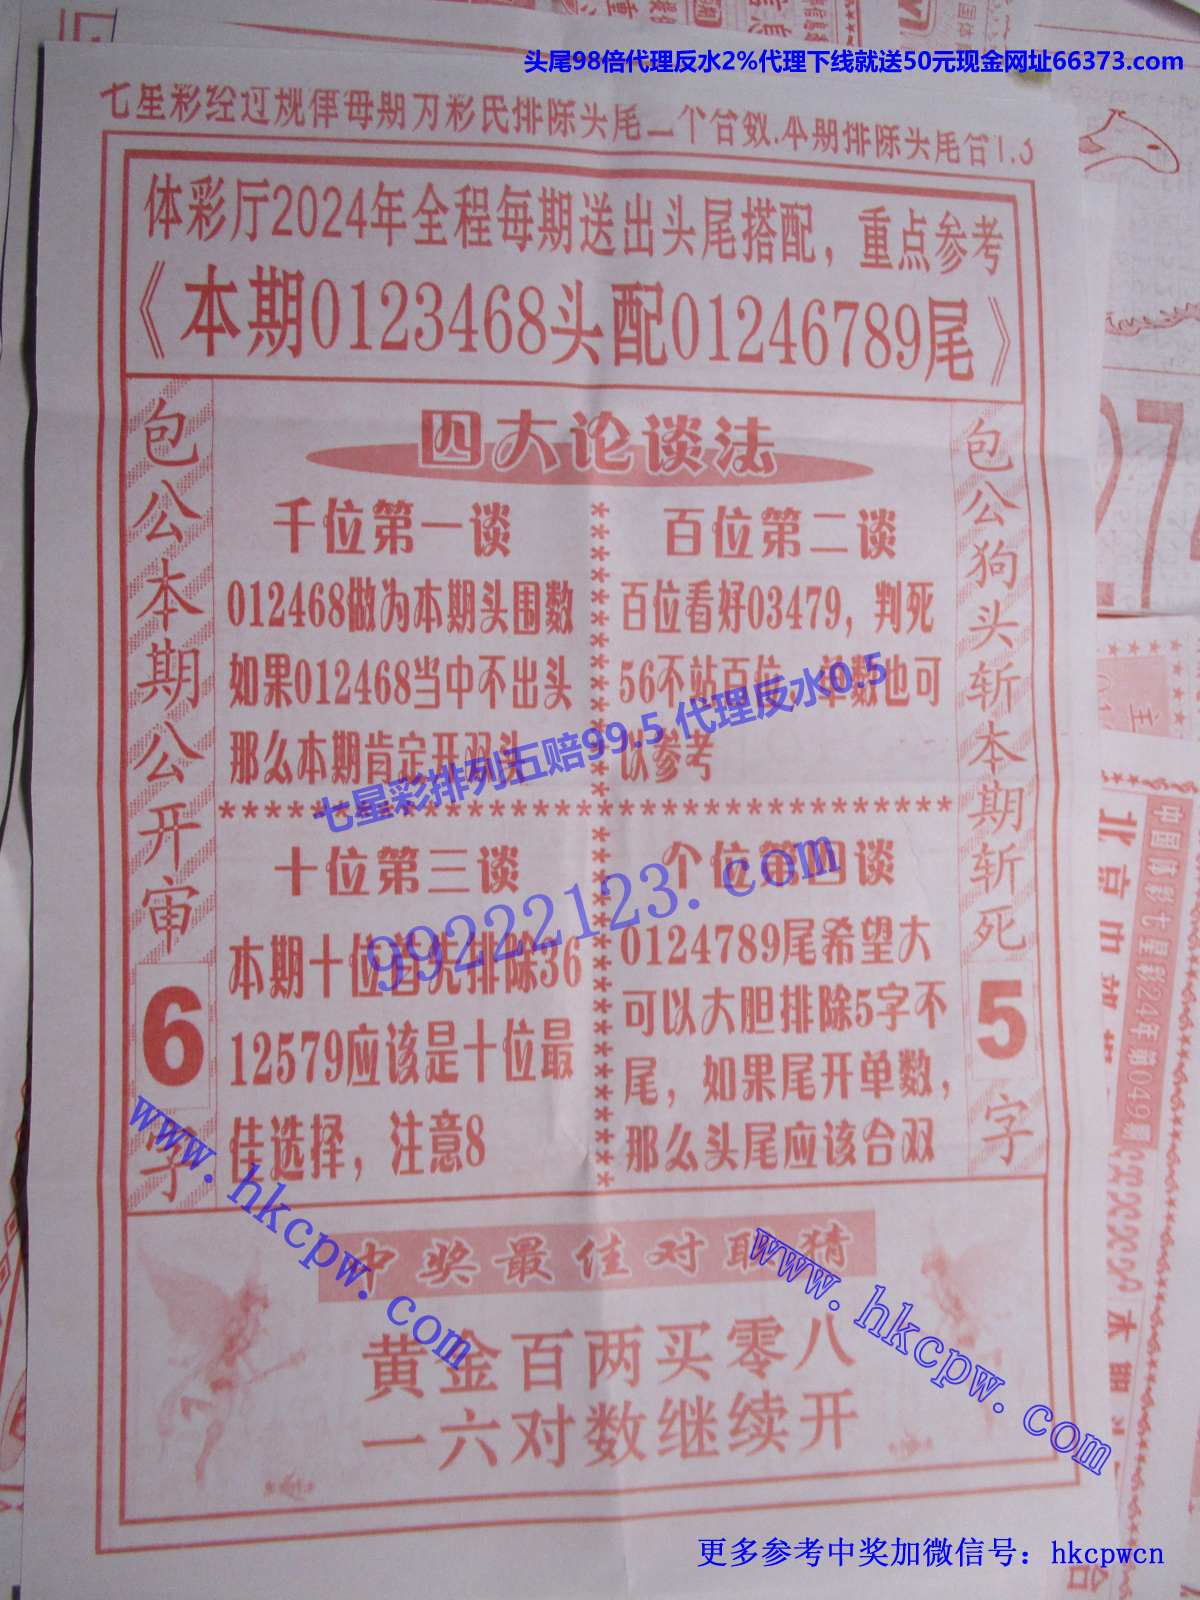 头尾98倍代理反水2%代理下线就送50元现金网址66373.com
七星彩经过规律每期为彩民排除头尾二个合数.本期排除头尾合1.3
体彩厅2024年全程每期送出头尾搭配，重点参考
《本期0123468头配01246789尾》
包公本期公开审
6
字
四大论谈法
千位第一谈
012468做为本期头围数
如果012468当中不出头
那么本期肯定开双头
百位第二谈
百位看好03479，判死
56不站百位，单数也可
以参考
七星彩排列五赔99.5 代理反水0.5
十位第三谈
本期十位首先排除36
12579应该是十位最
佳选择，注意8
99222123.com
个位第四谈
0124789尾希望大
可以大胆排除5字不
尾，如果尾开单数，
那么头尾应该合双
包公狗头斩本期斩死
5
字
www.hkcpw.com
www.hkcpw.com
中奖最佳对联猜
黄金百两买零八
一六对数继续开
27
中国体彩七星彩24年第049期
更多参考中奖加微信号：hkcpwcn